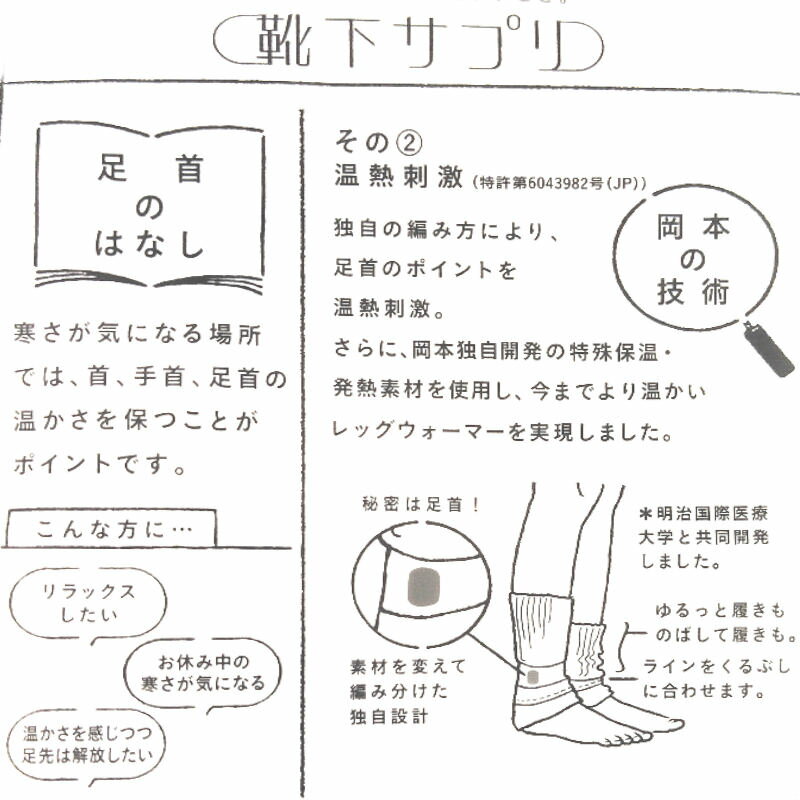 靴下サプリ
足首
の
はなし
寒さが気になる場所
では、首、手首、足首の
温かさを保つことが
ポイントです。
こんな方に…
リラックス
したい
お休み中の
寒さが気になる
温かさを感じつつ
足先は解放したい
その②
温熱刺激(特許第6043982号(JP))
岡本
の
技術
独自の編み方により、
足首のポイントを
温熱刺激。
さらに、岡本独自開発の特殊保温・
発熱素材を使用し、今までより温かい
レッグウォーマーを実現しました。
秘密は足首!
素材を変えて
編み分けた
独自設計
＊明治国際医療
大学と共同開発
しました。
ゆるっと履きも
のばして履きも。
ラインをくるぶし
に合わせます。